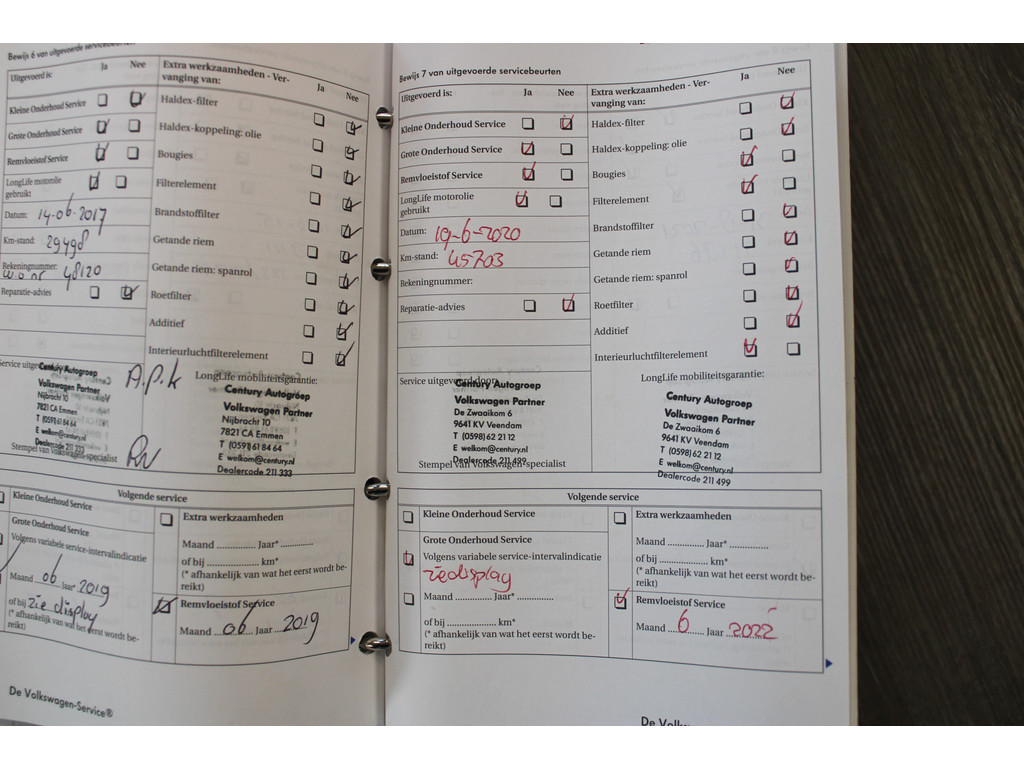 Bewijs 6 van uitgevoerde servicebeurten
Uitgevoerd is: Ja Nee
Kleine Onderhoud Service
Grote Onderhoud Service
Remvloeistof Service
LongLife motorolie
gebruik:
Datum: 14-06-2017
Km-stand: 29498
Rekeningnummer:
w.o nr 48120
Reparatie-advies
Extra werkzaamheden - Ver-
vanging van: Ja Nee
Haldex-filter
Haldex-koppeling: olie
Bougies
Filterelement
Brandstoffilter
Getande riem
Getande riem: spanrol
Roetfilter
Additief
Interieurluchtfilterelement
Service uitge
Century Autogroep
Volkswagen Partner
Nijbracht 10
7821 CA Emmen
T (0591) 61 84 64
E welkom@century.nl
Dealercode 211 333
Stempel van Volkswagen-specialist
A.p.k
LongLife mobiliteitsgarantie:
Century Autogroep
Volkswagen Partner
Nijbracht 10
7821 CA Emmen
T (0591) 61 84 64
E welkom@century.nl
Dealercode 211 333
Volgende service
Kleine Onderhoud Service
Grote Onderhoud Service
Volgens variable service-intervalindicatie
Maand 06 Jaar* 2019
of bij zie display
(* afhankelijk van wat het eerst wordt be-
reikt)
Extra werkzaamheden
Maand ............... Jaar* ..............
of bij .................... km*
(* afhankelijk van wat het eerst wordt be-
reikt)
Remvloeistof Service
Maand 06 Jaar 2019
De Volkswagen-Service®
Bewijs 7 van uitgevoerde servicebeurten
Uitgevoerd is: Ja Nee
Kleine Onderhoud Service
Grote Onderhoud Service
Remvloeistof Service
LongLife motorolie
gebruikt
Datum: 19-6-2020
Km-stand: 45703
Rekeningnummer:
Reparatie-advies
Extra werkzaamheden - Ver-
vanging van: Ja Nee
Haldex-filter
Haldex-koppeling: olie
Bougies
Filterelement
Brandstoffilter
Getande riem
Getande riem: spanrol
Roetfilter
Additief
Interieurluchtfilterelement
Service uitgevoerd door:
Century Autogroep
Volkswagen Partner
De Zwaaikom 6
9641 KV Veendam
T (0598) 62 21 12
E welkom@century.nl
Dealercode 211 499
Stempel van Volkswagen-specialist
LongLife mobiliteitsgarantie:
Century Autogroep
Volkswagen Partner
De Zwaaikom 6
9641 KV Veendam
T (0598) 62 21 12
E welkom@century.nl
Dealercode 211 499
Volgende service
Kleine Onderhoud Service
Grote Onderhoud Service
Volgens variabele service-intervalindicatie
zie display
Maand ............... Jaar* ...............
of bij .................... km*
(* afhankelijk van wat het eerst wordt be-
reikt)
Extra werkzaamheden
Maand ............... Jaar* ...............
of bij .................... km*
(* afhankelijk van wat het eerst wordt be-
reikt)
Remvloeistof Service
Maand 6 Jaar 2022
De Volks